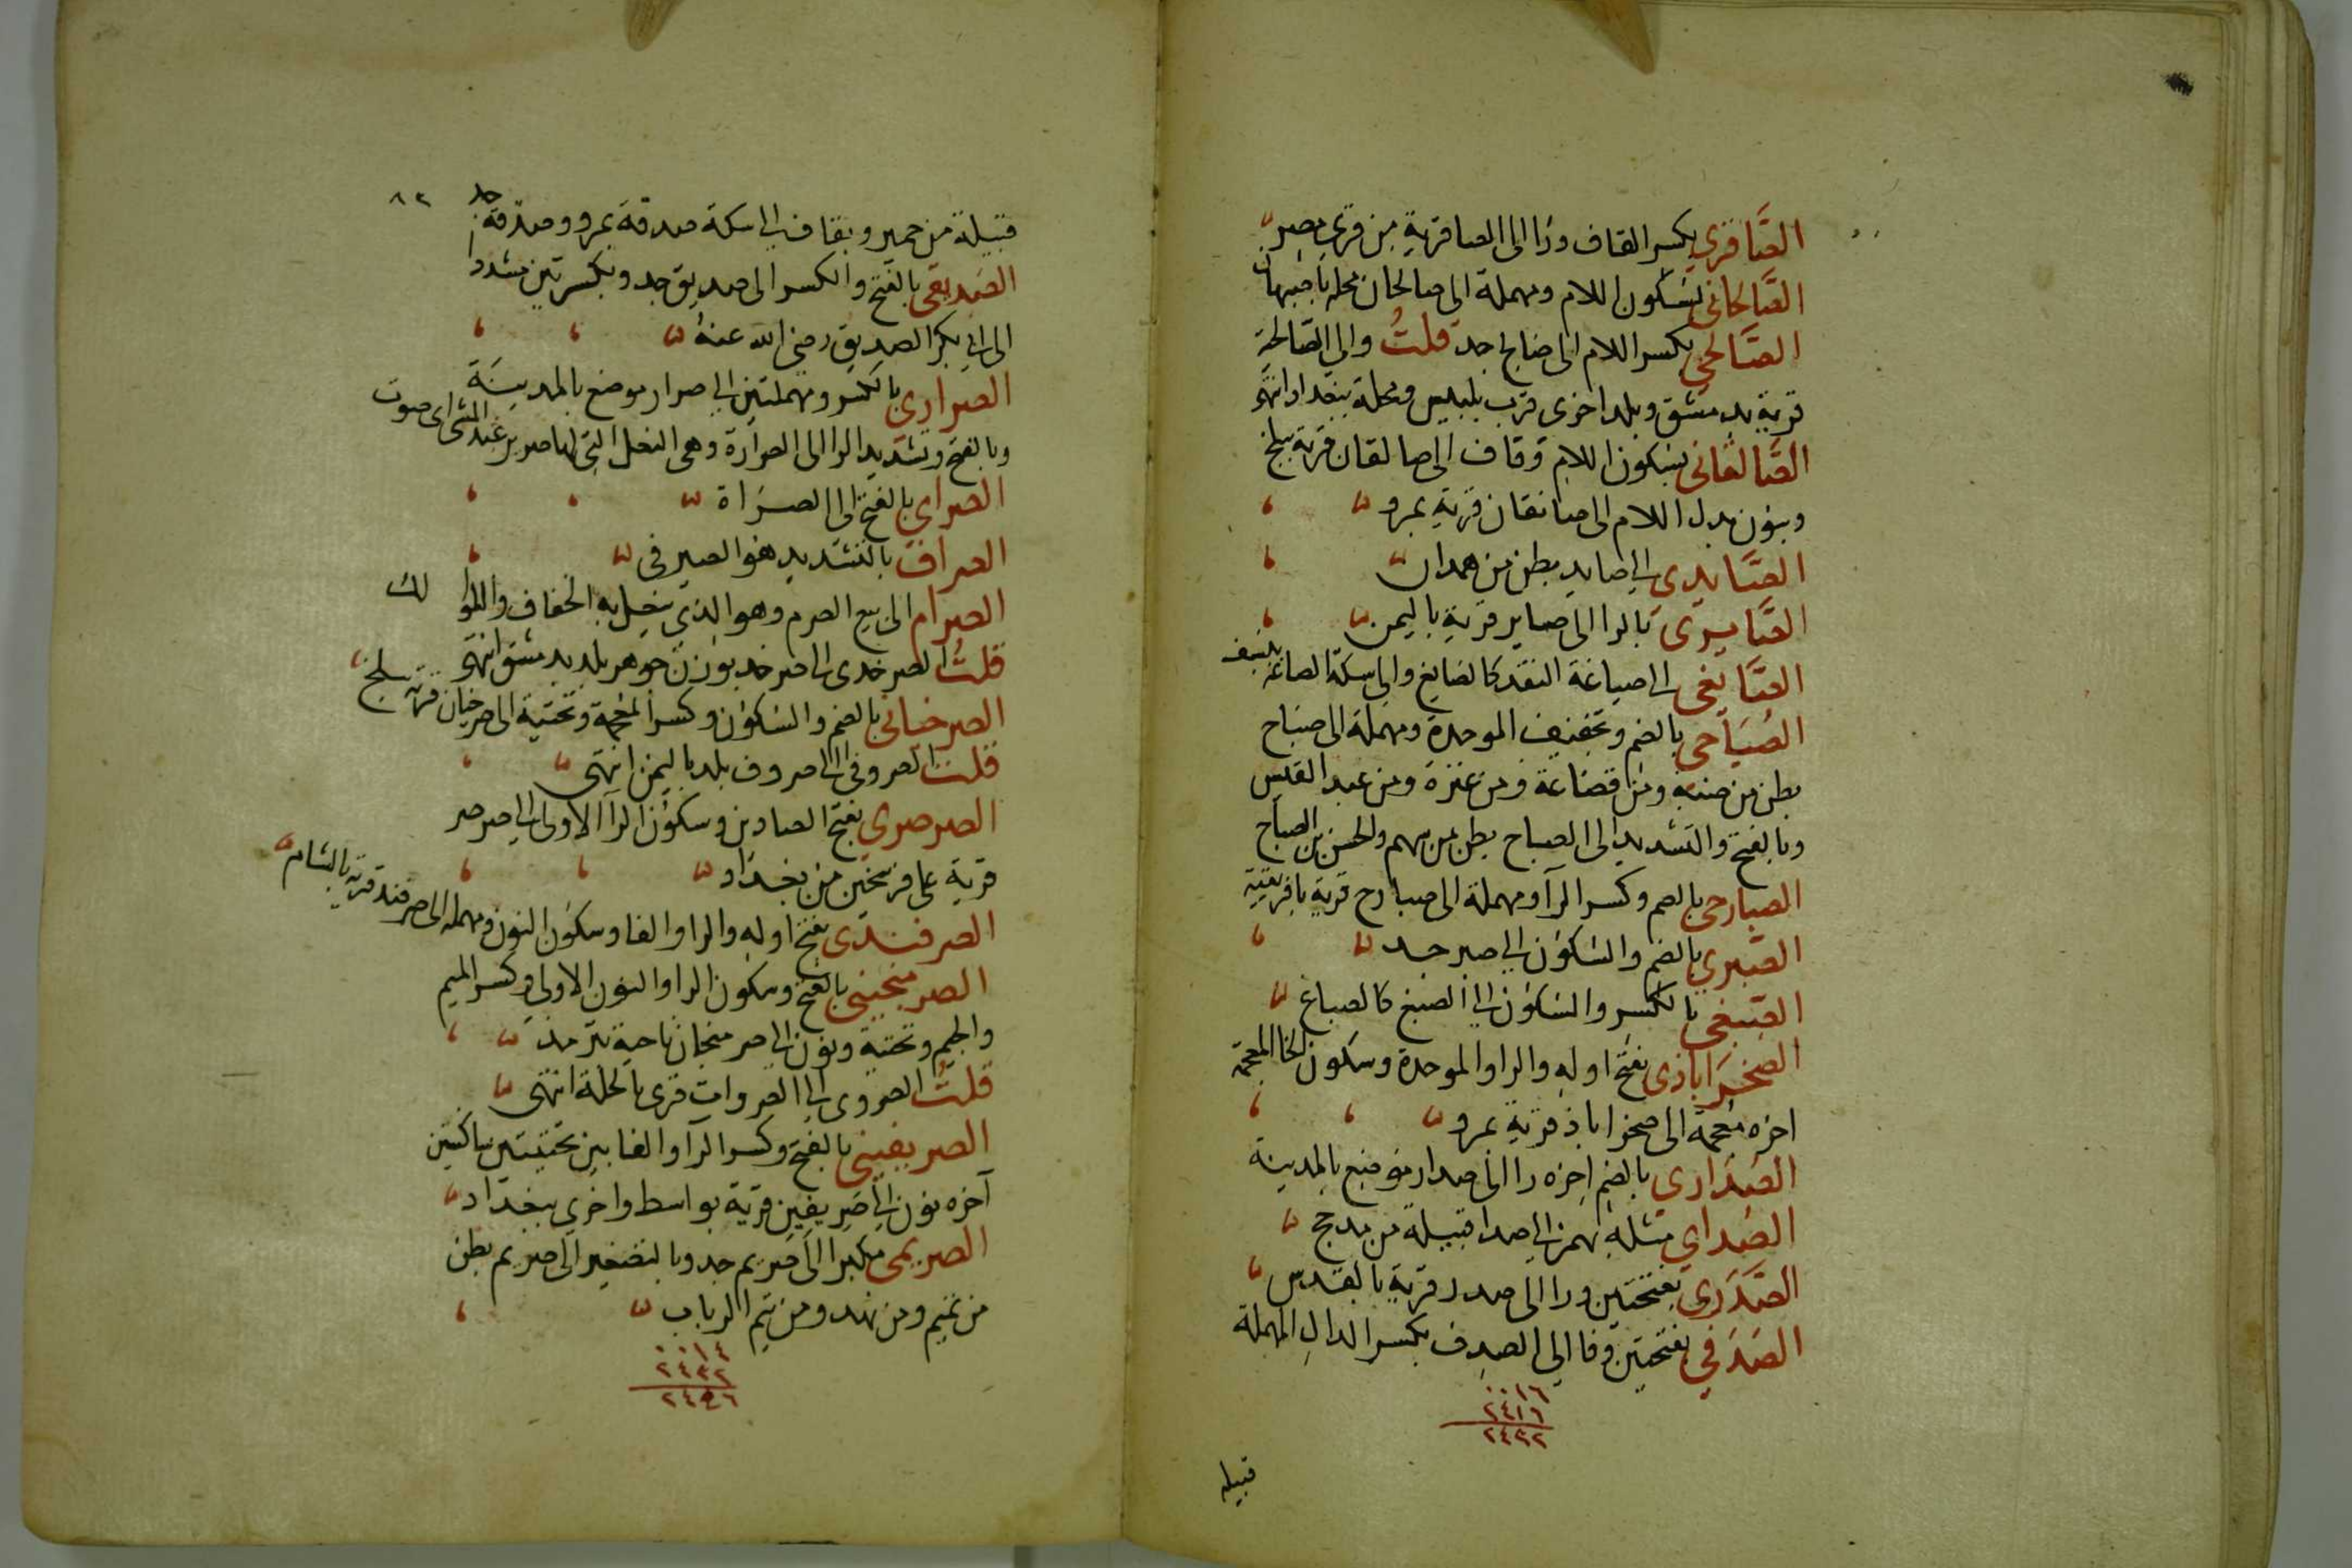 الصَّافري بكسر القاف ورا الى الصافرية من قرى مصر
الصَّالحانى بسكون اللام ومهملة الى صالحان محلة باصبهان
الصَّالحي بكسر اللام الى صالح جد قلتُ والى الصّالحية
قرية بدمشق وبلد اخرى قرب بلبيس ومحلة ببغداد انتهى
الصَّالقانى بسكون اللام وقاف الى صالقان قرية ببلخ
وبنون بدل اللام الى صانقان قرية بمرو
الصَّايدي الى صايد بطن من همدان
الصَّايري بالرا الى صاير قرية باليمن
الصَّايغي الى صياغة النقد كالصايغ والى سكة الصاغة بنسف
الصُبَاحى بالضم وتخفيف الموحدة ومهملة الى صباح
بطن من ضبة ومن قضاعة ومن عنزة ومن عبد القيس
وبالفتح والتشديد الى الصباح بطن من سهم والحسن بن الصباح
الصبارحى بالضم وكسر الرا ومهملة الى صبارح قرية بافريقية
الصَّبري بالضم والسكون الى صبر جد
الصَّبغي بالكسر والسكون الى الصبغ كالصباغ
الصَخرَاباذى بفتح اوله والرا والموحدة وسكون الخا المعجمة
اخره معجمة الى صخراباذ قرية بمرو
الصُدَاري بالضم اخره را الى صدار موضع بالمدينة
الصُداي مثله بهمز الى صدا قبيلة من مذحج
الصَّدَري بفتحتين ورا الى صدر قرية بالقدس
الصَدَفي بفتحتين وفا الى الصدِف بكسر الدال المهملة
٠٠١٦
٢٤١٦
٢٤٣٢
قبيلة
٨٣
قبيلة من حمير وبقاف الى سكة صدقة بمرو وصدقة جد
الصَديقى بالفتح والكسر الى صديق جد وبكسرتين مشددا
الى ابي بكر الصديق رضى الله عنهُ
الصراري بالكسر ومهملتين الى صرار موضع بالمدينة
وبالفتح وتشديد الرا الى الصرارة وهى النعل التى لها صرير عند المشى اى صوت
الصراي بالفتح الى الصَراة
الصراف بالتشديد هو الصيرفى
الصرام الى بيع الصرم وهو الذى ينعل به الخفاف واللوالك
قلتُ الصرخدى الى صرخد بوزن جوهر بلد بدمشق انتهى
الصرخيانى بالضم والسكون وكسر المعجمة وتحتية الى صرخيان قرية ببلخ
قلتُ الصروفى الى صروف بلد باليمن انتهى
الصرصري بفتح الصادين وسكون الرا الاولى الى صرصر
قرية على فرسخين من بغداد
الصرفندى بفتح اوله والرا والفا وسكون النون ومهملة الى صرفند قرية بالشام
الصرمنجينى بالفتح وسكون الرا والنون الاولى وكسر الميم
والجيم وتحتية ونون الى صرمنجان ناحية بترمذ
قلتُ الصروى الى الصروات قرى بالحلة انتهى
الصريفينى بالفتح وكسر الرا والفا بين تحتيتين ساكنتين
آخره نون الى صَرِيفين قرية بواسط واخرى ببغداد
الصريمى مكبرا الى صَريم جد وبالتصغير الى صريم بطن
من تميم ومن نهد ومن تيم الرباب
٠٠١٤
٢٤٣٢
٢٤٤٦